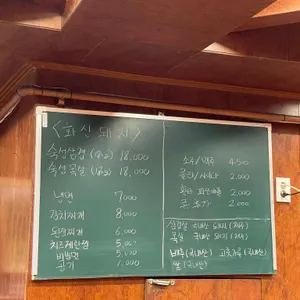 <화신돼지>
숙성삼겹 (180g) 18,000
숙성목살 (180g) 18,000
냉면 7000
김치찌개 8,000
된장찌개 6,000
치즈계란찜 5,000
비빔면 5,000
공기 1,000
소주/맥주 4500
콜라/사이다 2,000
2,000
2,000
삼겹살 국내산
목살 국내산
배추(국내산) 고춧가루(국내산)
쌀(국내산)